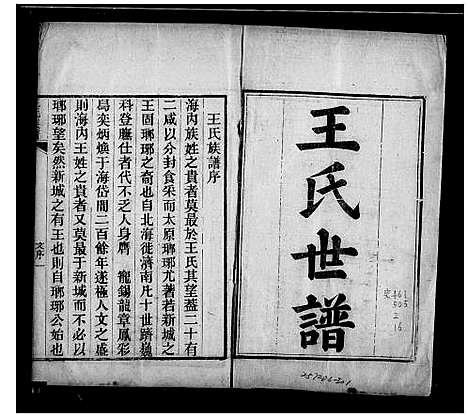 王氏世譜
王氏族譜序
海內族姓之貴者莫最於王氏其望蓋二十有
二咸以分封食采而太原瑯琊尤著若新城之
王固瑯琊之裔也自北海徙濟南凡十世躋巍
科登膴仕者代不乏人身膺 寵錫龍章鳳彩
舄奕炳煥于海岱間二百餘年遂極人文之盛
則海內王姓之貴者又莫最于新城而不必以
瑯琊望矣然新城之有王也則自瑯琊公始也
257286-201